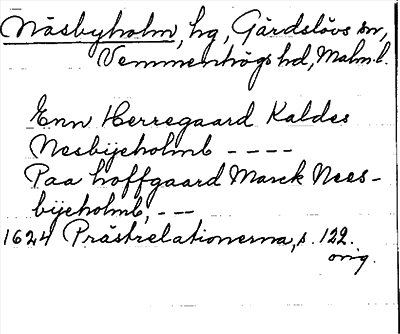 Näsbyholm, hg, Gärdslövs sn,
Vemmenhögs hd, Malm. l.
Enn Herregaard Kaldes
Nesbijeholmb - - - -
Paa hoffgaard Marck Nees-
bijeholmb, - - -
1624 Prästrelationerna, s. 122.
orig.